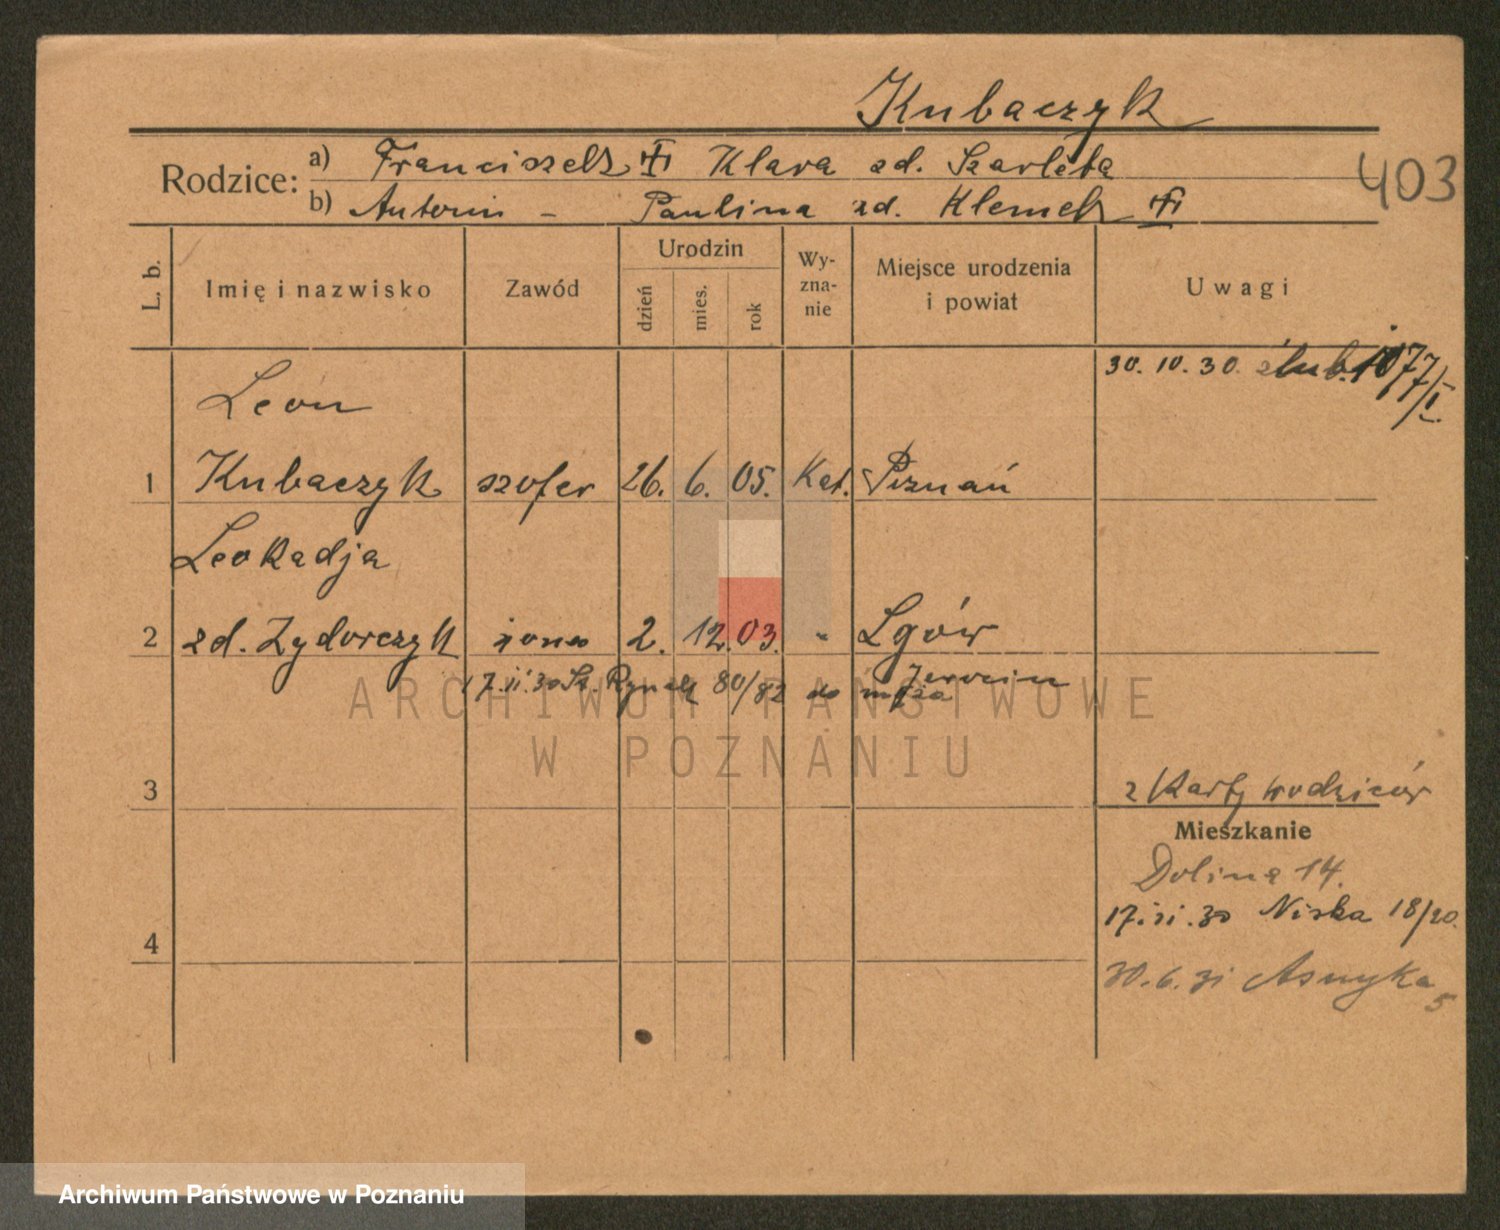 Kubaczyk
Rodzice: a) Franciszek Klara zd. Szarleta
403
b) Antoni - Paulina zd. Klemek
L. b. Imię i nazwisko Zawód Urodzin dzień mies. rok Wy-zna-nie Miejsce urodzenia i powiat Uwagi
30. 10. 30. ślub.
Leon
1 Kubaczyk szofer 26. 6. 05. Kat. Poznań
Leokadja
2 zd. Zydorczyk żona 2. 12. 03. " Lgów
Jarocin
17.11.30 St. Rynek 80/82 do męża
ARCHIWUM PAŃSTWOWE
W POZNANIU
3
z Karty rodziców
Mieszkanie
Dolina 14.
17.11.30 Niska 18/20.
4
30.6.31 Asnyka 5
Archiwum Państwowe w Poznaniu